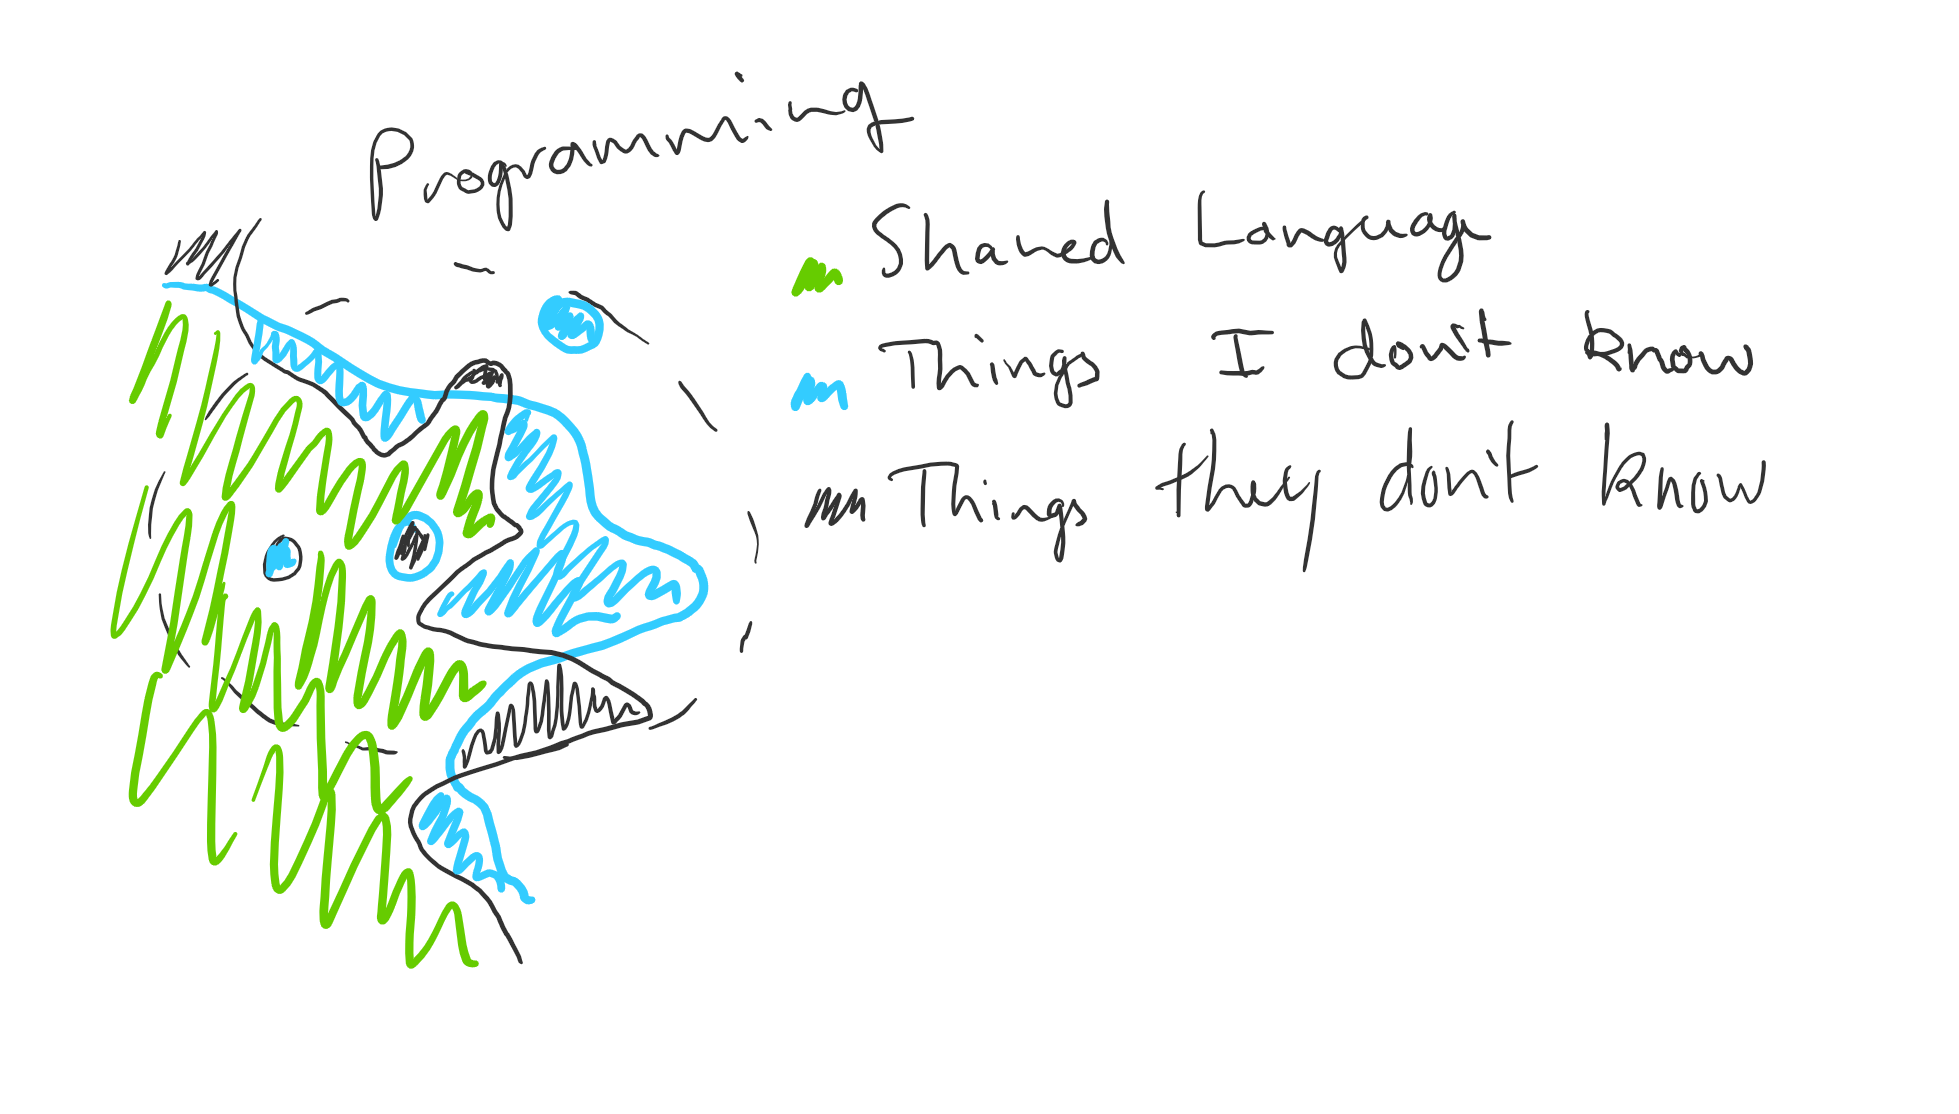 Programming
Shared Language
Things I don't know
Things they don't know